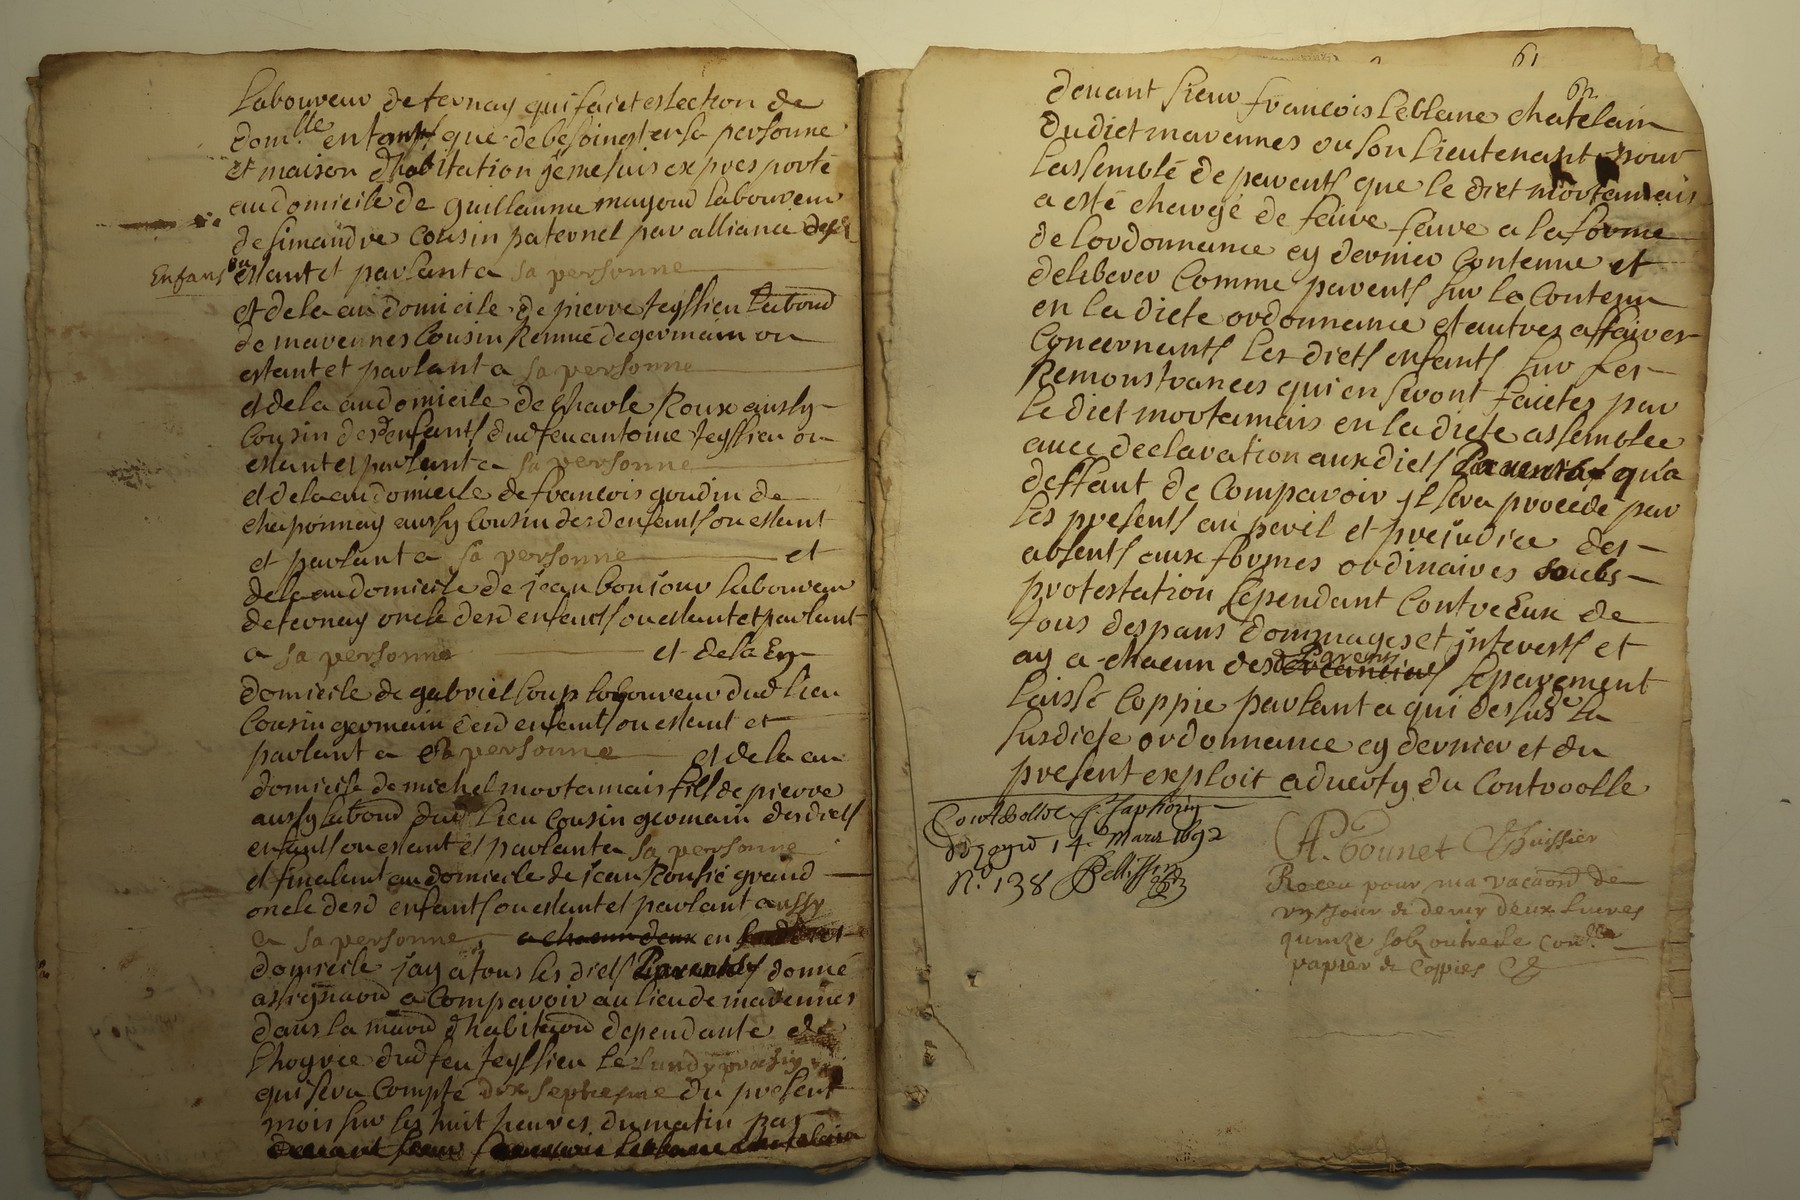 Laboureur de ternay qui faict eslection de
dom.lle en tant que de besoingt en sa personne
et maison dhabitation je me suis expres porté
au domicile de guillaume mayoud laboureur
de simandre Cousin paternel par alliance desd
Enfans ou estant et parlant a sa personne
et de la au domicile de pierre teyssieu labour
de marennes Cousin Remué de germain ou
estant et parlant a sa personne
et de la au domicile de Charle Roux aussy
Cousin desd enfants dud feu antoine teyssieu ou
estant et parlant a sa personne
et de la au domicile de francois goudin de
chaponnay aussy Cousin desd enfants ou estant
et parlant a sa personne et
de la au domicile de jean bonjour laboureur
de ternay oncle desd enfants ou estant et parlant
a sa personne et de la En
domicile de gabriel loup laboureur dud lieu
Cousin germain desd enfants ou estant et
parlant a sa personne et de la au
domicile de michel mortamais fils de pierre
aussy labour dud lieu Cousin germain desdicts
enfants ou estant et parlant a sa personne
et finalemt au domicile de jean Rousié grand
oncle desd enfants ou estant et parlant aussy
a sa personne a chacun deux en
domicile jay a tous les dicts Parents donné
assignaon a Comparoir au lieu de marennes
dans la maison dhabitaon dependante de
lhoyrie dud feu teyssieu le lundy prochin
qui sera Compté dix septiesme du present
mois sur les huit heures du matin par
devant sieur francois leblanc chatelain
61
devant sieur francois leblanc chatelain
dudict marennes ou son lieutenant pour
lassemblé de parents que le dict mortamais
a esté chargé de faire faire a la forme
de lordonnance cy dernier Contenue et
deliberer Comme parents sur la Contenu
en la dicte ordonnance et autres affaires
Concernants les dicts enfants sur les
Remonstrances qui en seront faictes par
le dict mortamais en la dicte assemblee
avec declaration aux dicts Parents qu'a
deffaut de Comparoir jl sera procede par
les presents au peril et prejudice des
absents aux formes ordinaires soubs
protestation Cependant Contre Eux de
tous despans dommages et jnterests et
ay a chacun desd Parents separement
laissé Coppie parlant a qui dessus de la
susdicte ordonnance cy dernier et du
present exploit adverty du Controolle
Controolle a S. Saphorin
dozon 14 Mars 1692
N.o 138
huissier
Receu pour ma vacaon de
un jour & demy deux livres
quinze sols outre le Con.lle
papier & Coppies